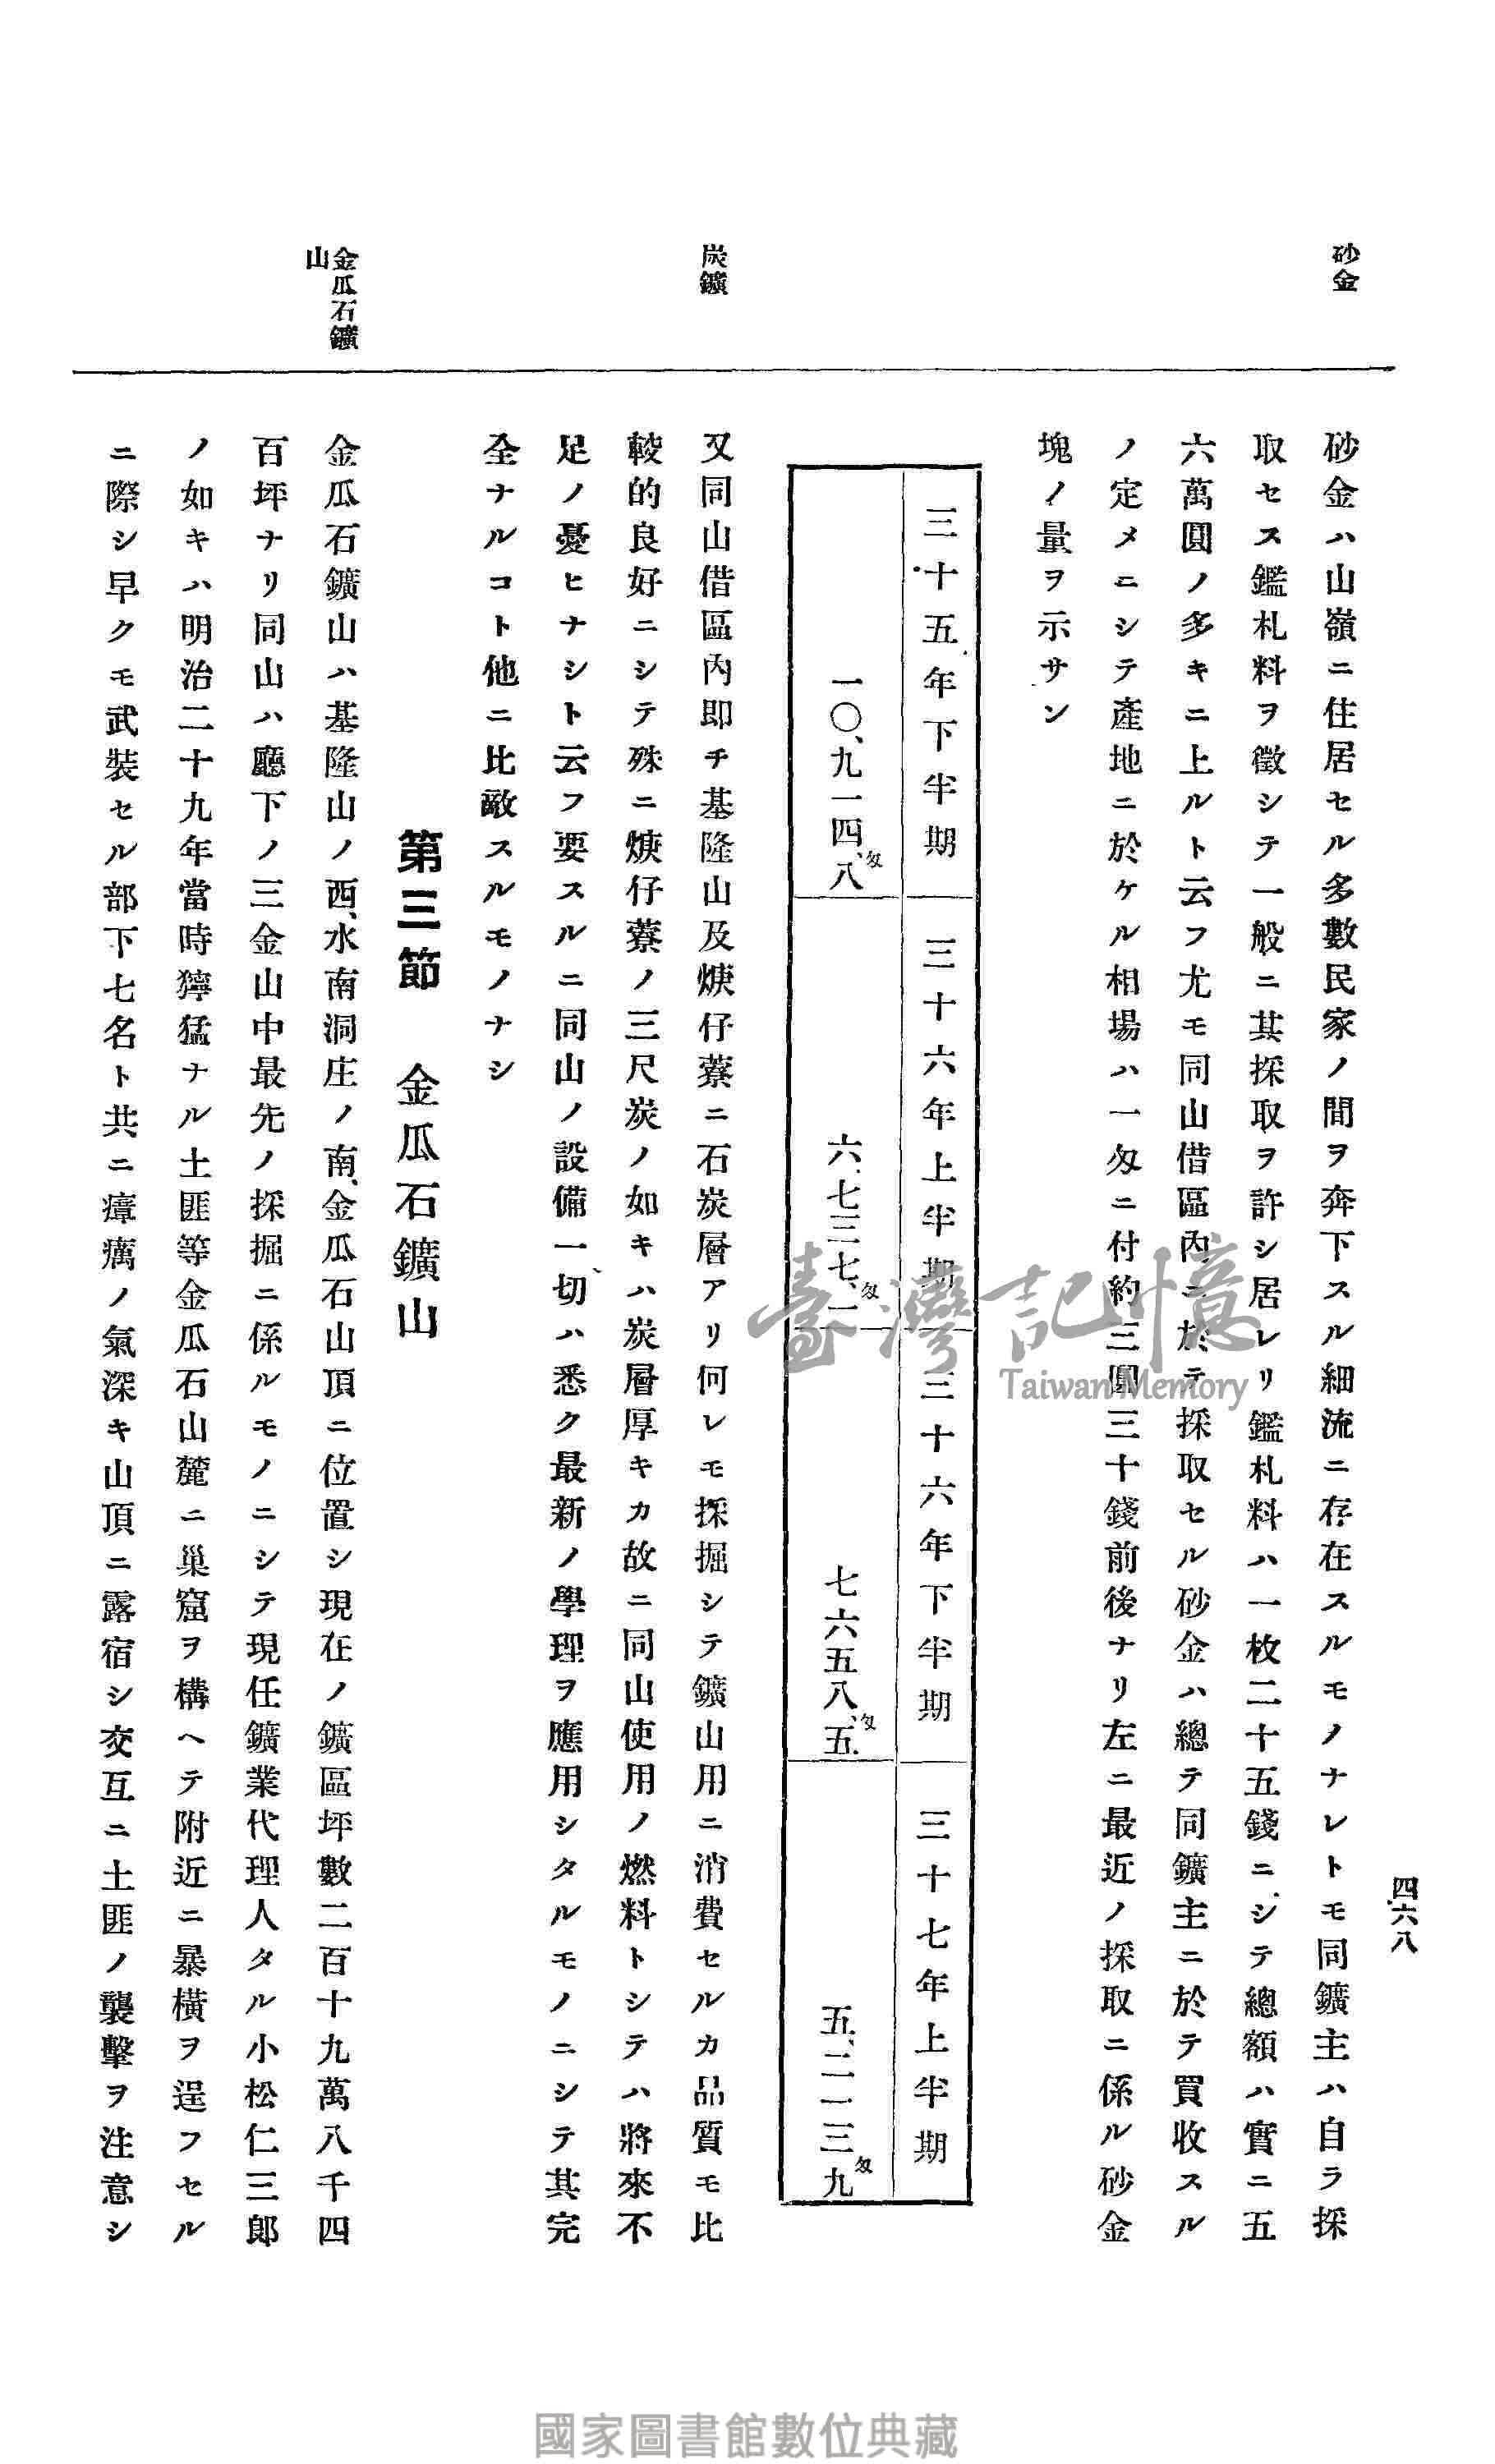 四六八
砂金
砂金ハ山嶺ニ住居セル多數民家ノ間ヲ奔下スル細流ニ存在スルモノナレトモ同鑛主ハ自ラ採
取セス鑑札料ヲ徵シテ一般ニ其採取ヲ許シ居レリ鑑札料ハ一枚二十五錢ニシテ總額ハ實ニ五
六萬圓ノ多キニ上ルト云フ尤モ同山借區內ニ於テ採取セル砂金ハ總テ同鑛主ニ於テ買收スル
ノ定メニシテ產地ニ於ケル相場ハ一匁ニ付約三圓三十錢前後ナリ左ニ最近ノ採取ニ係ル砂金
塊ノ量ヲ示サン
三十五年下半期
三十六年上半期
三十六年下半期
三十七年上半期
一〇、九一四、匁八
六、七三七、匁一
七六五八、匁五
五、二一三匁九
炭鑛
又同山借區內卽チ基隆山及焿仔藔ニ石炭層アリ何レモ採掘シテ鑛山用ニ消費セルカ品質モ比
較的良好ニシテ殊ニ焿仔藔ノ三尺炭ノ如キハ炭層厚キカ故ニ同山使用ノ燃料トシテハ將來不
足ノ憂ヒナシト云フ要スルニ同山ノ設備一切ハ悉ク最新ノ學理ヲ應用シタルモノニシテ其完
全ナルコト他ニ比敵スルモノナシ
第三節 金瓜石鑛山
金瓜石鑛
山
金瓜石鑛山ハ基隆山ノ西、水南洞庄ノ南、金瓜石山頂ニ位置シ現在ノ鑛區坪數二百十九萬八千四
百坪ナリ同山ハ廳下ノ三金山中最先ノ採掘ニ係ルモノニシテ現任鑛業代理人タル小松仁三郎
ノ如キハ明治二十九年當時獰猛ナル土匪等金瓜石山麓ニ巢窟ヲ構ヘテ附近ニ暴橫ヲ逞フセル
ニ際シ早クモ武裝セル部下七名ト共ニ瘴癘ノ氣深キ山頂ニ露宿シ交互ニ土匪ノ襲擊ヲ注意シ
臺灣記憶
Taiwan Memory
國家圖書館數位典藏